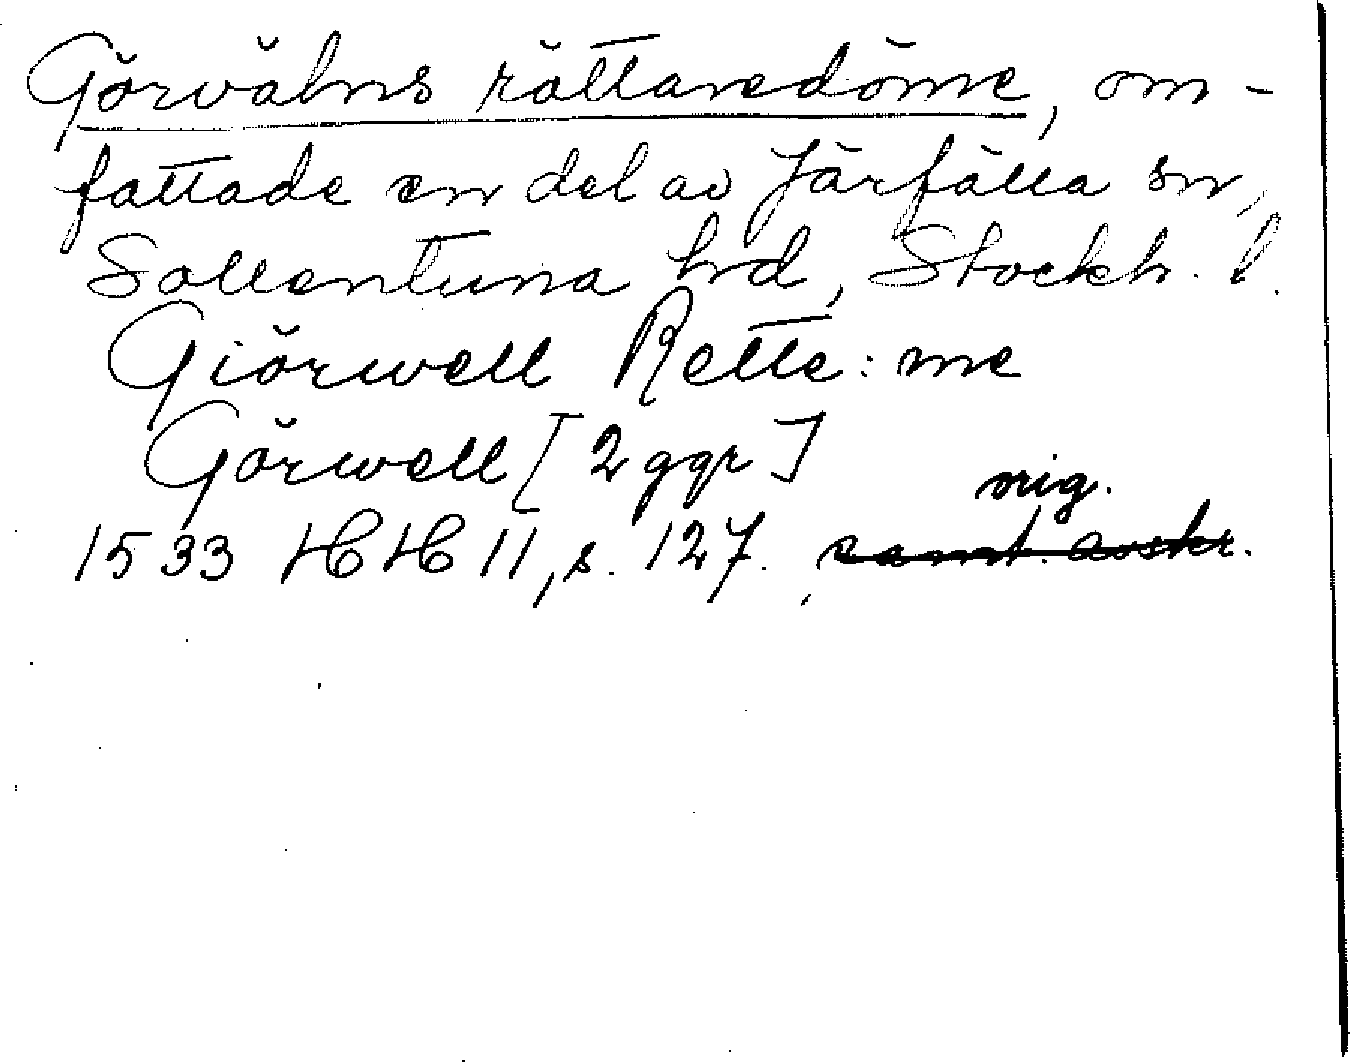 Görvälns rättaredöme, om-
fattade en del av Järfälla sn,
Sollentuna hd, Stockh. l.
Giörwell Rette:me
Görwell [2 ggr]
orig.
1533 HH 11, s. 127. , samt. avskr.